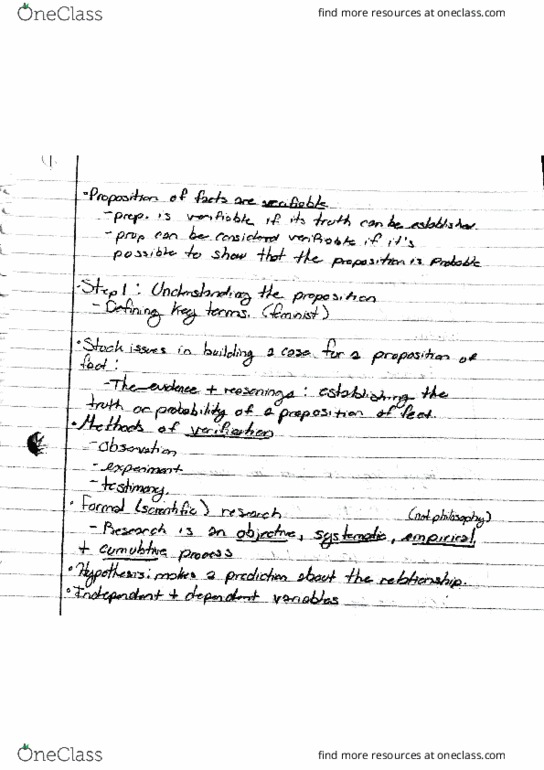 OneClass
find more resources at oneclass.com
• Proposition of facts are verifiable
- prop. is verifiable if its truth can be
- prop can be considered verifiable if it's
possible to show that the proposition is probable
• Step 1: Understanding the proposition
- Defining key terms. (feminist)
• Stock issues in building a case for a proposition of
fact:
- The evidence + reasonings: establishing the
truth or probability of a proposition of fact.
• Methods of verification
- Observation
- experiment
- testimony.
• Formal (scientific) research (not philosophy)
- Research is an objective, systematic, empirical,
+ process
• Hypothesis: makes a prediction about the relationship.
• Independent + dependent variables
OneClass
find more resources at oneclass.com